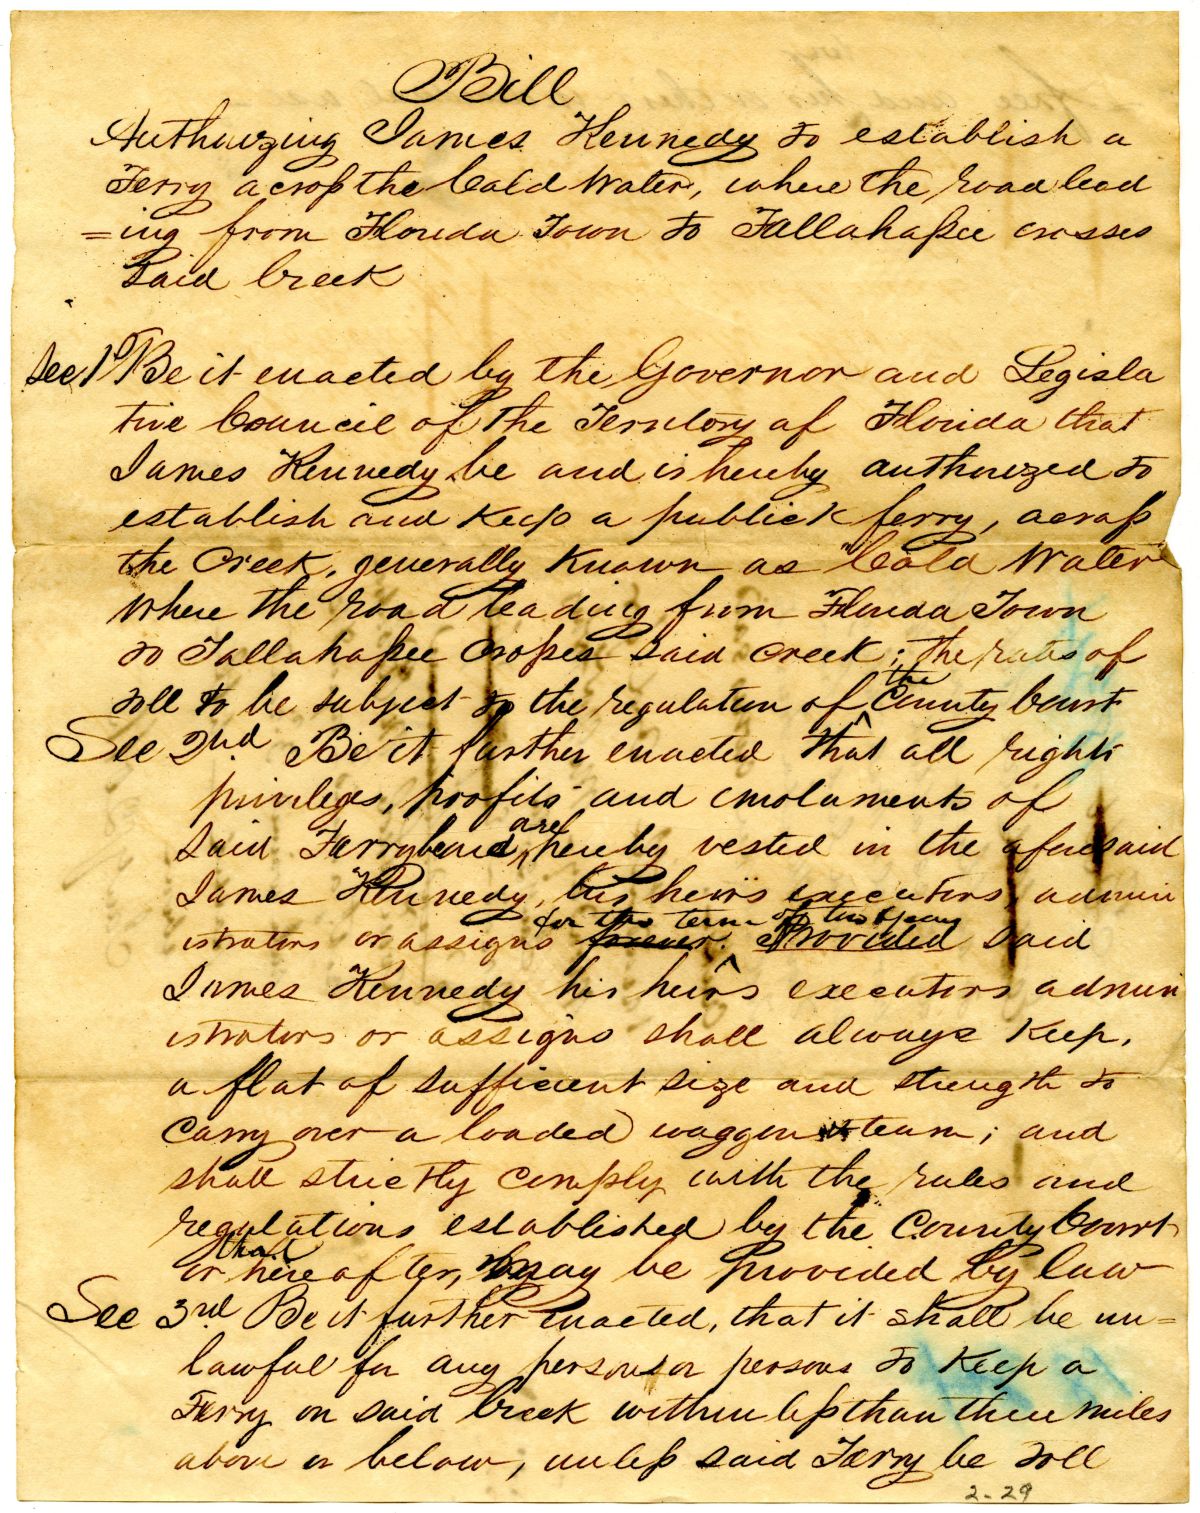 Bill
Authorizing James Kennedy to establish a
Ferry across the Cold Water, where the road lead
=ing from Florida Town to Tallahassee crosses
said Creek
Sec 1st Be it enacted by the Governor and Legisla
tive Council of the Territory of Florida that
James Kennedy be and is hereby authorized to
establish and Keep a publick ferry, across
the Creek, generally Known as Cold Water
where the road leading from Florida Town
to Tallahassee Crosses said creek; the rates of
the
toll to be subject to the regulation of ^ County Court
Sec 2nd. Be it further enacted that all rights
privileges, profits and emoluments of
are
said Ferry ^ hereby vested in the aforesaid
James Kennedy, his heirs executors, admin
for the term of two years
istrators or assigns forever. Provided ^ said
James Kennedy his heirs executors admin
istrators or assigns shall always Keep,
a flat of sufficient size and strength to
Carry over a loaded waggon & team; and
shall strictly comply with the rules and
regulations established by the County Court
that
or hereafter, may be provided by law
Sec 3rd Be it further enacted, that it shall be un=
lawful for any person or persons to Keep a
Ferry on said Creek within less than three miles
above or below, unless said Ferry be toll
2-29